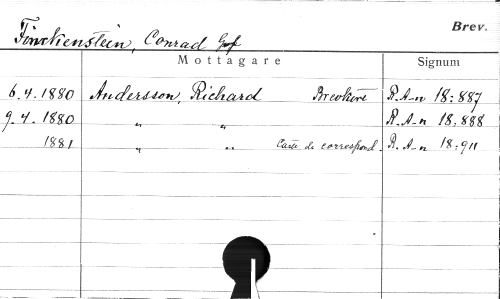 Brev.
Finckenstein, Conrad Graf
Mottagare Signum
6.4.1880 Andersson, Richard Brevkort R.A-n 18:887
9.4.1880 " " R.A-n 18.888
1881 " " Carte de correspond. R.A-n 18:911